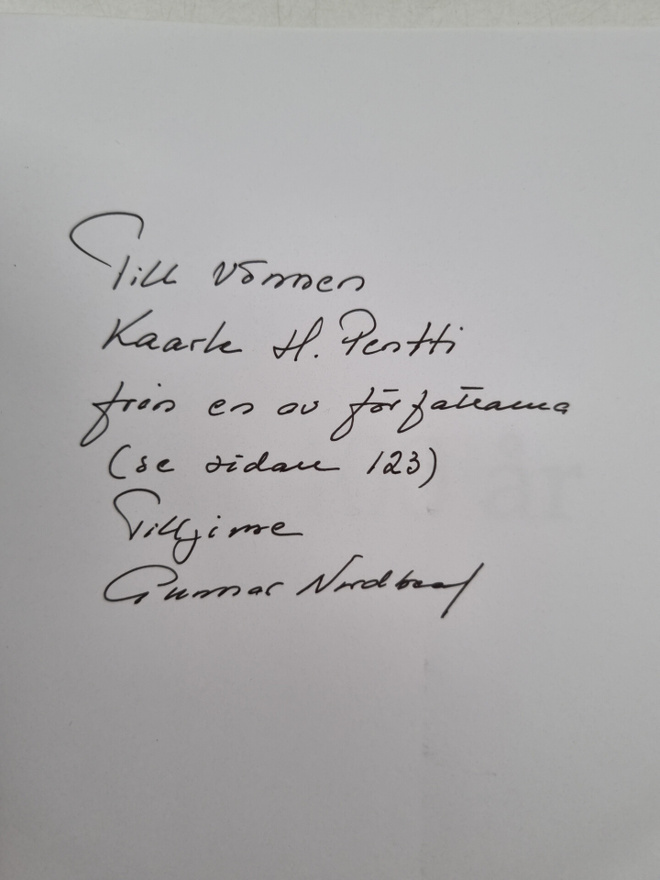 Till vännen
Kaarle H. Pentti
från en av författarna
(se sidan 123)
Tillgivne
Gunnar